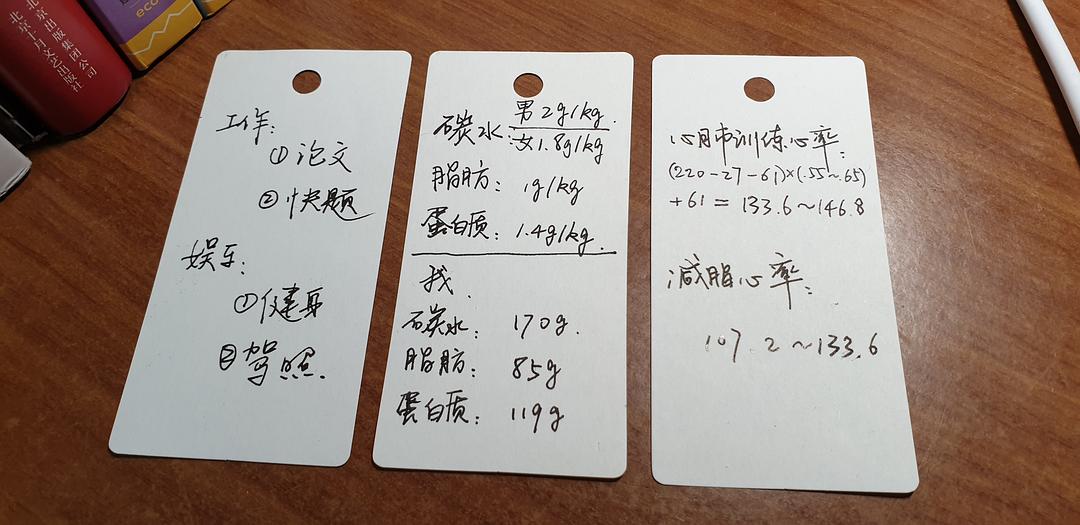 北京出版集团公司
北京十月文艺出版社
eco
工作:
① 论文
② 快题
娱乐:
① 健身
② 驾照.
碳水: 男 2g/kg.
女 1.8g/kg
脂肪: 1g/kg
蛋白质: 1.4g/kg.
我.
碳水: 170g.
脂肪: 85g
蛋白质: 119g
心肺训练心率:
(220-27-61)×(.55~.65)
+61 = 133.6~146.8
减脂心率:
107.2~133.6